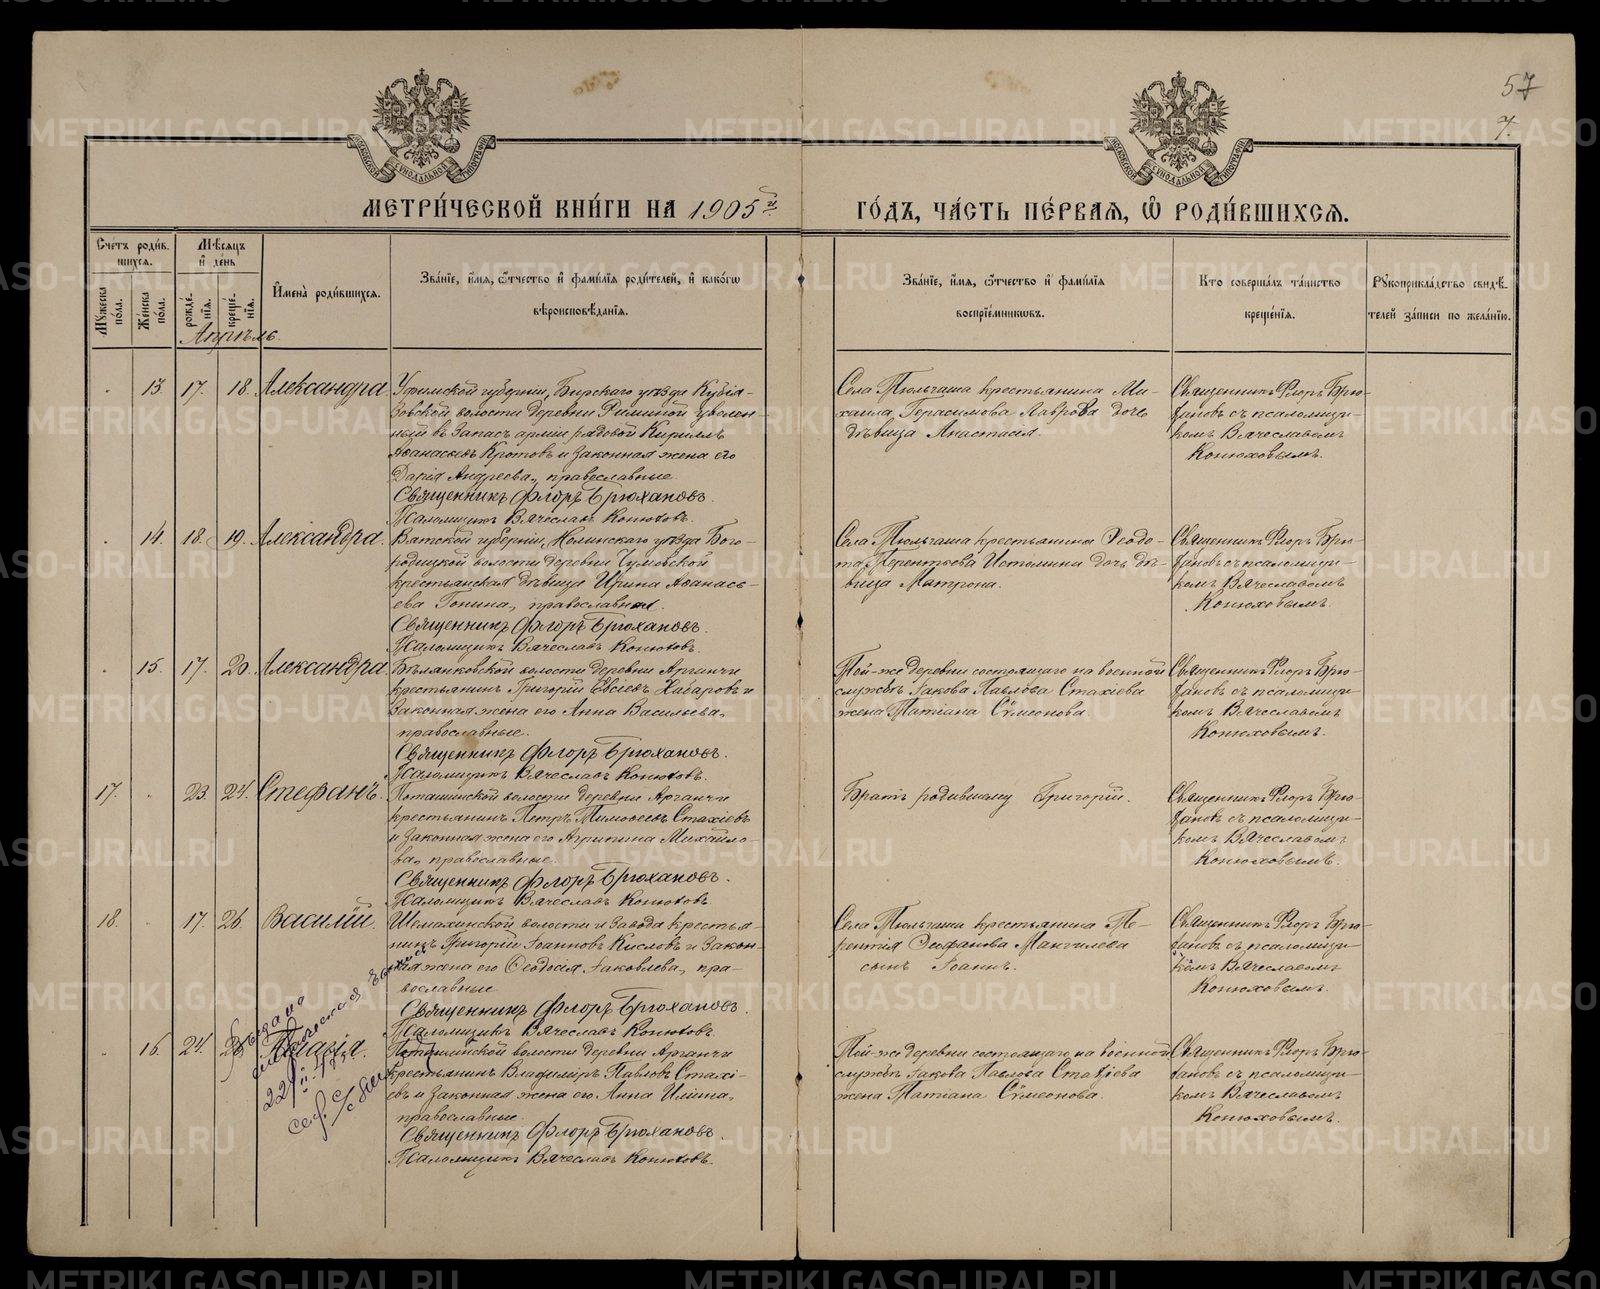 57
7.
МЕТРИ́ЧЕСКОЙ КНИ́ГИ НА 1905й
ГО́ДЪ, ЧА́СТЬ ПЕ́РВАЯ, Ѽ РОДИ́ВШИХСЯ.
Сче́тъ роди́вшихся.
Му́жеска по́ла.
Же́нска по́ла.
Мѣ́сяцъ и҆ де́нь
рожде́нїя.
креще́нїя.
И҆мена̀ роди́вшихся.
Зва́нїе, и҆́мя, ѻ҆́тчество и҆ фами́лїя роди́телей, и҆ како́гѡ
вѣроисповѣ́данїя.
Зва́нїе, и҆́мя, ѻ҆́тчество и҆ фами́лїя
воспрїе́мникѡвъ.
Кто̀ соверша́лъ та́инство
креще́нїя.
Рꙋкоприкла́дство свидѣ́телей за́писи по жела́нїю.
Апрѣль.
13. 17. 18. Александра.
Уфимской губерніи, Бирскаго уѣзда Кубія-
зовской волости деревни Риминой уволен-
ный въ запасъ арміи рядовой Кириллъ
Аѳанасьевъ Кротовъ и законная жена его
Дарія Андреева, православные.
Священникъ Флоръ Брюхановъ.
Псаломщикъ Вячеславъ Конюховъ.
Села Тюльгаша крестьянина Ми-
хаила Герасимова Лаврова дочь
дѣвица Анастасія.
Священникъ Флоръ Брю-
хановъ съ псаломщи-
комъ Вячеславомъ
Конюховымъ.
14. 18. 19. Александра.
Вятской губерніи, Нолинскаго уѣзда Бого-
родицкой волости деревни Чумовской
крестьянская дѣвица Ирина Аѳанась-
ева Гонина, православная.
Священникъ Флоръ Брюхановъ.
Псаломщикъ Вячеславъ Конюховъ.
Села Тюльгаша крестьянина Ѳеодо-
та Терентьева Истомина дочь дѣ-
вица Матрона.
Священникъ Флоръ Брю-
хановъ съ псаломщи-
комъ Вячеславомъ
Конюховымъ.
15. 17. 20. Александра
Бѣлянковской волости деревни Арганчи
крестьянинъ Григорій Евсіевъ Хабаровъ и
законная жена его Анна Васильева,
православные.
Священникъ Флоръ Брюхановъ.
Псаломщикъ Вячеславъ Конюховъ.
Той-же деревни состоящаго на военной
службѣ Іакова Павлова Стахіева
жена Татіана Сѵмеонова.
Священникъ Флоръ Брю-
хановъ съ псаломщи-
комъ Вячеславомъ
Конюховымъ.
17. 23. 24. Стефанъ.
Поташинской волости деревни Арганчи
крестьянинъ Петръ Тимоѳеевъ Стахіевъ
и законная жена его Агрипина Михайло-
ва, православные.
Священникъ Флоръ Брюхановъ.
Псаломщикъ Вячеславъ Конюховъ.
Братъ родившему Григорій.
Священникъ Флоръ Брю-
хановъ съ псаломщи-
комъ Вячеславомъ
Конюховымъ.
18. 17. 26. Василій.
Шемахинской волости и завода крестья-
нинъ Григорій Іоанновъ Кисловъ и закон-
ная жена его Ѳеодосія Іаковлева, пра-
вославные
Священникъ Флоръ Брюхановъ.
Псаломщикъ Вячеславъ Конюховъ.
Села Тюльгаша крестьянина Те-
рентія Ѳеофанова Мангилева
сынъ Іоаннъ.
Священникъ Флоръ Брю-
хановъ съ псаломщи-
комъ Вячеславомъ
Конюховымъ.
16. 24.
Поташинской волости деревни Арганчи
крестьянинъ Владиміръ Павловъ Стахі-
евъ и законная жена его Анна Илiина,
православные.
Священникъ Флоръ Брюхановъ.
Псаломщикъ Вячеславъ Конюховъ.
Той-же деревни состоящаго на военной
службѣ Іакова Павлова Стахіева
жена Татіана Сѵмеонова.
Священникъ Флоръ Брю-
хановъ съ псаломщи-
комъ Вячеславомъ
Конюховымъ.
Выдана